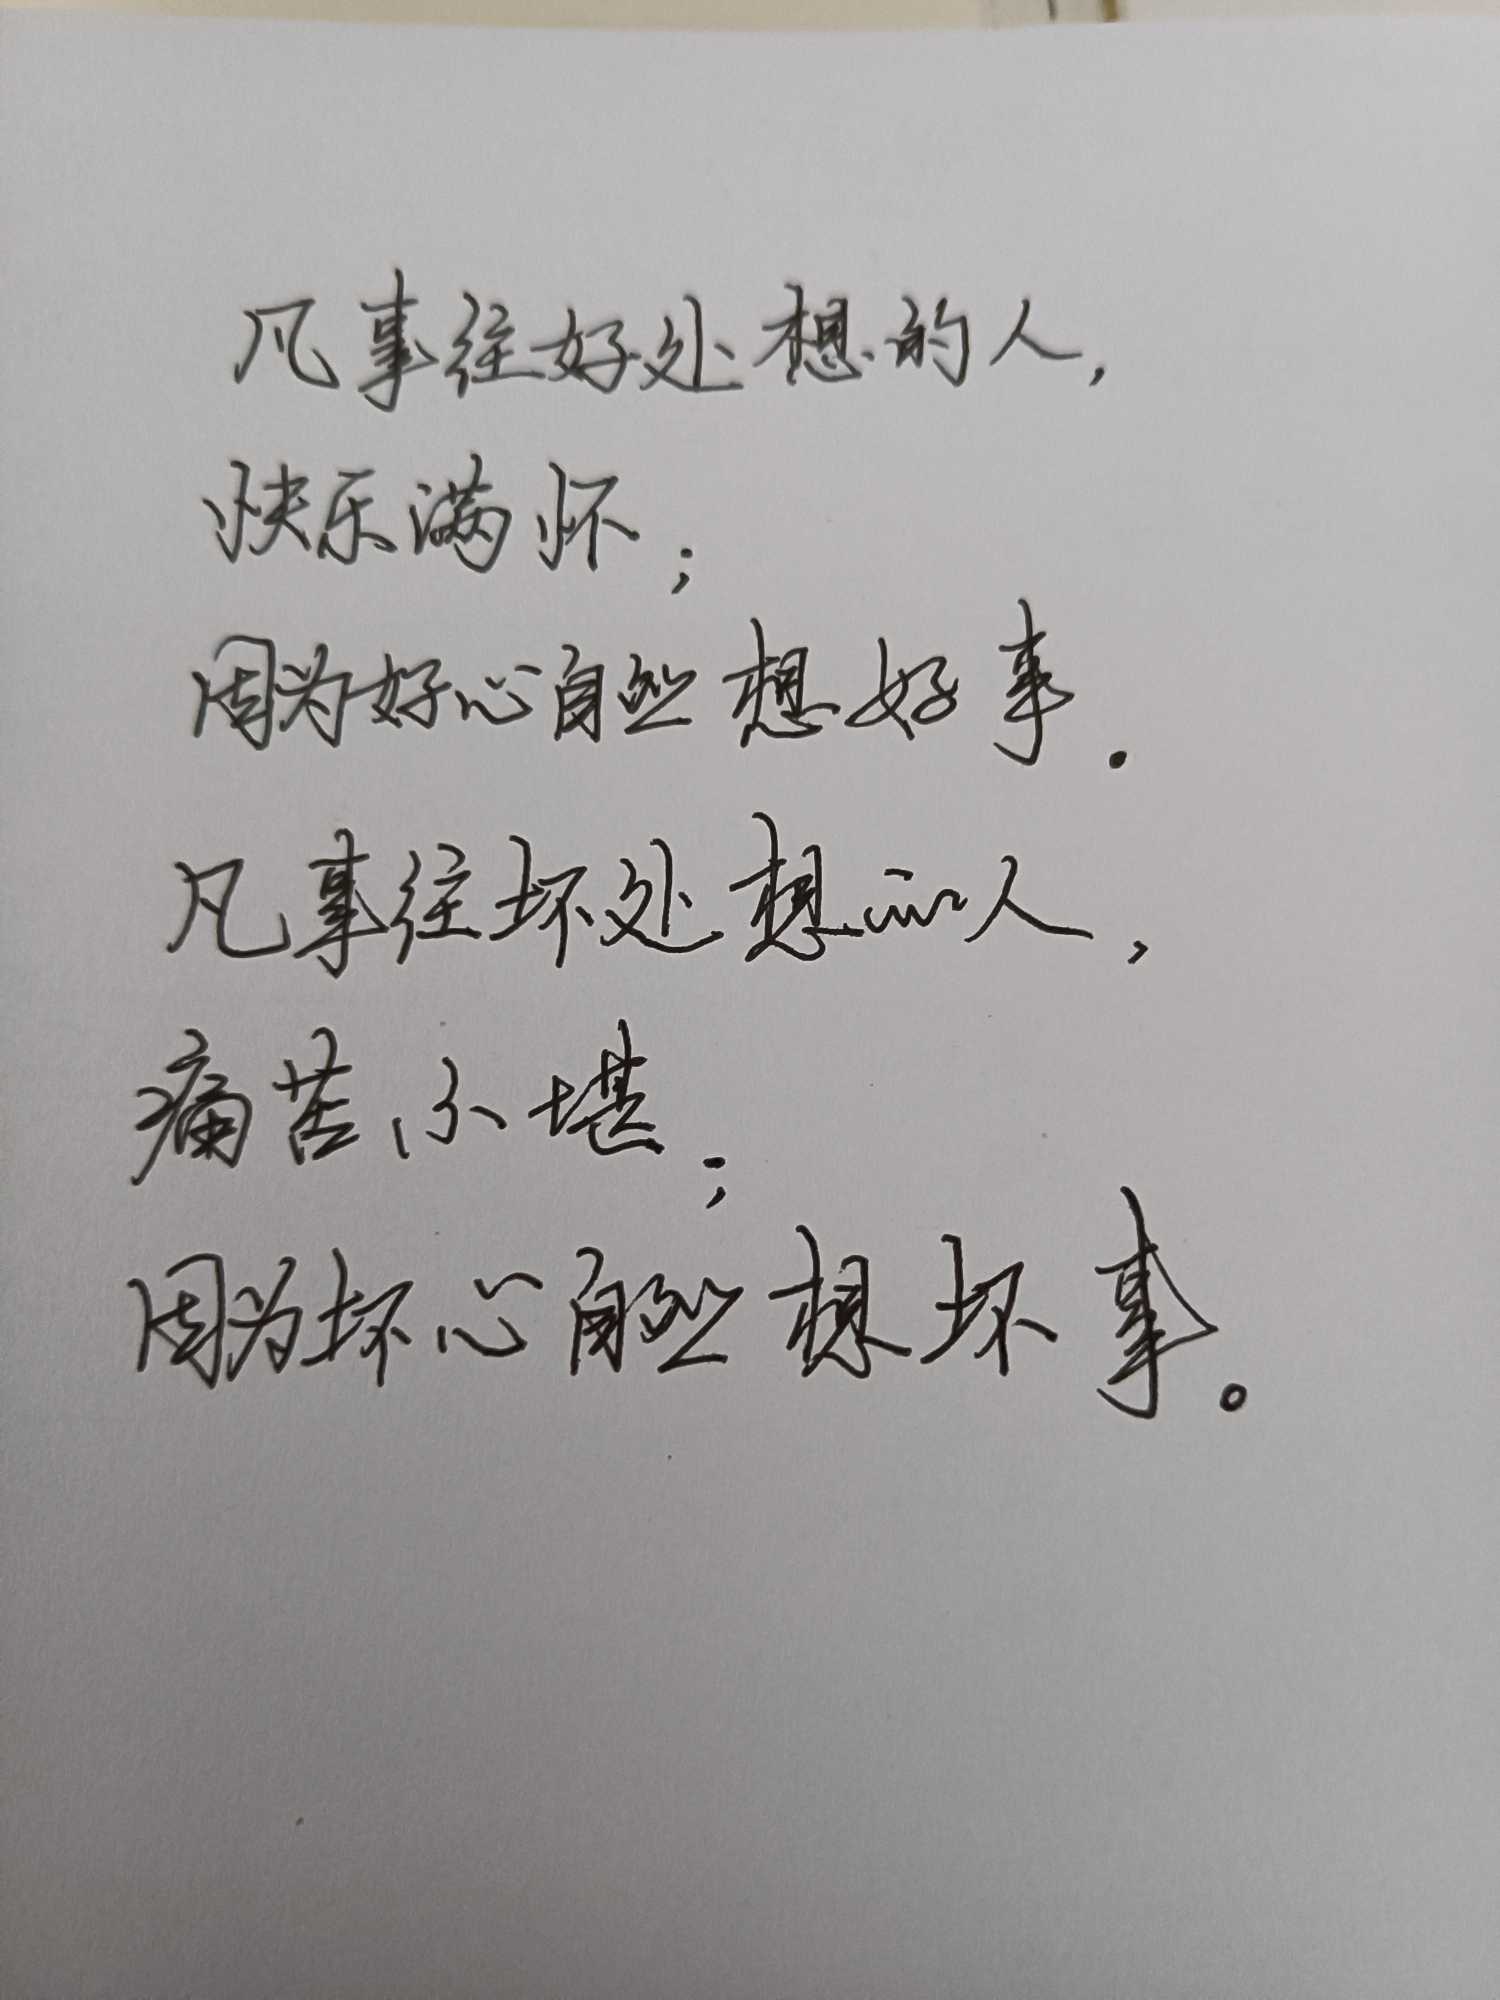 凡事往好处想的人,
快乐满怀;
因为好心自然想好事.
凡事往坏处想的人,
痛苦不堪;
因为坏心自然想坏事。